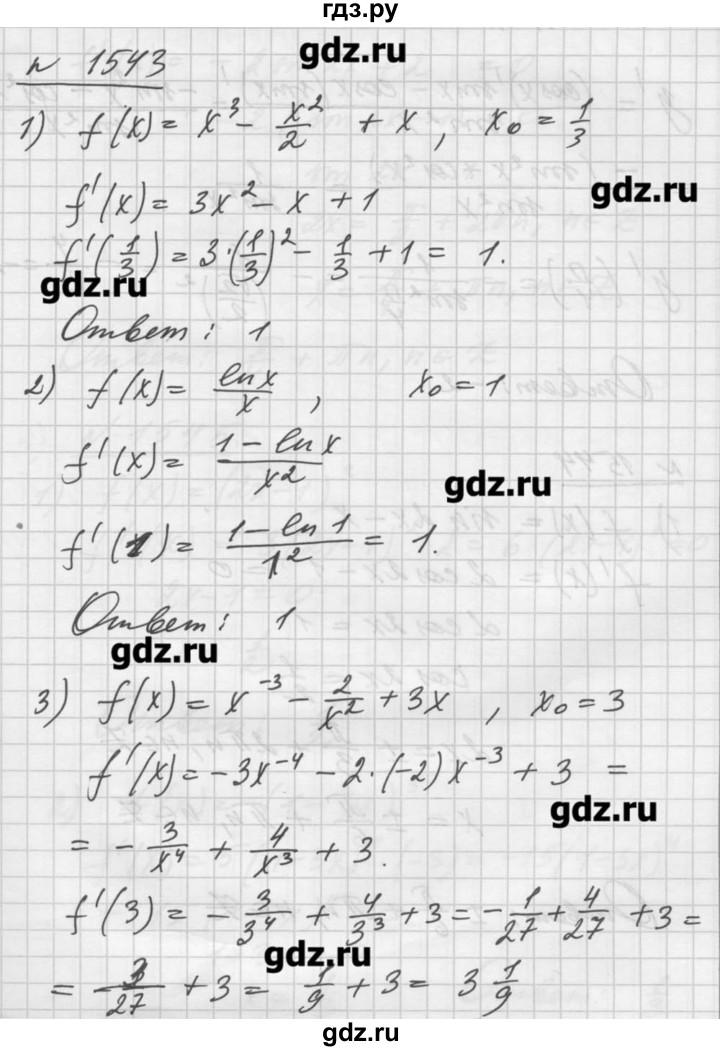 гдз.ру
gdz.ru
n 1543
1) f(x) = x³ - x²/2 + x, x₀ = 1/3
gdz.ru
f'(x) = 3x² - x + 1
f'(1/3) = 3·(1/3)² - 1/3 + 1 = 1.
gdz.ru
Ответ: 1
2) f(x) = ln x/x, x₀ = 1
f'(x) = (1 - ln x)/x²
gdz.ru
f'(1) = (1 - ln 1)/1² = 1.
Ответ: 1
gdz.ru
3) f(x) = x⁻³ - 2/x² + 3x, x₀ = 3
f'(x) = -3x⁻⁴ - 2·(-2)x⁻³ + 3 =
gdz.ru
= - 3/x⁴ + 4/x³ + 3.
f'(3) = - 3/3⁴ + 4/3³ + 3 = - 1/27 + 4/27 + 3 =
gdz.ru
= 3/27 + 3 = 1/9 + 3 = 3 1/9
gdz.ru